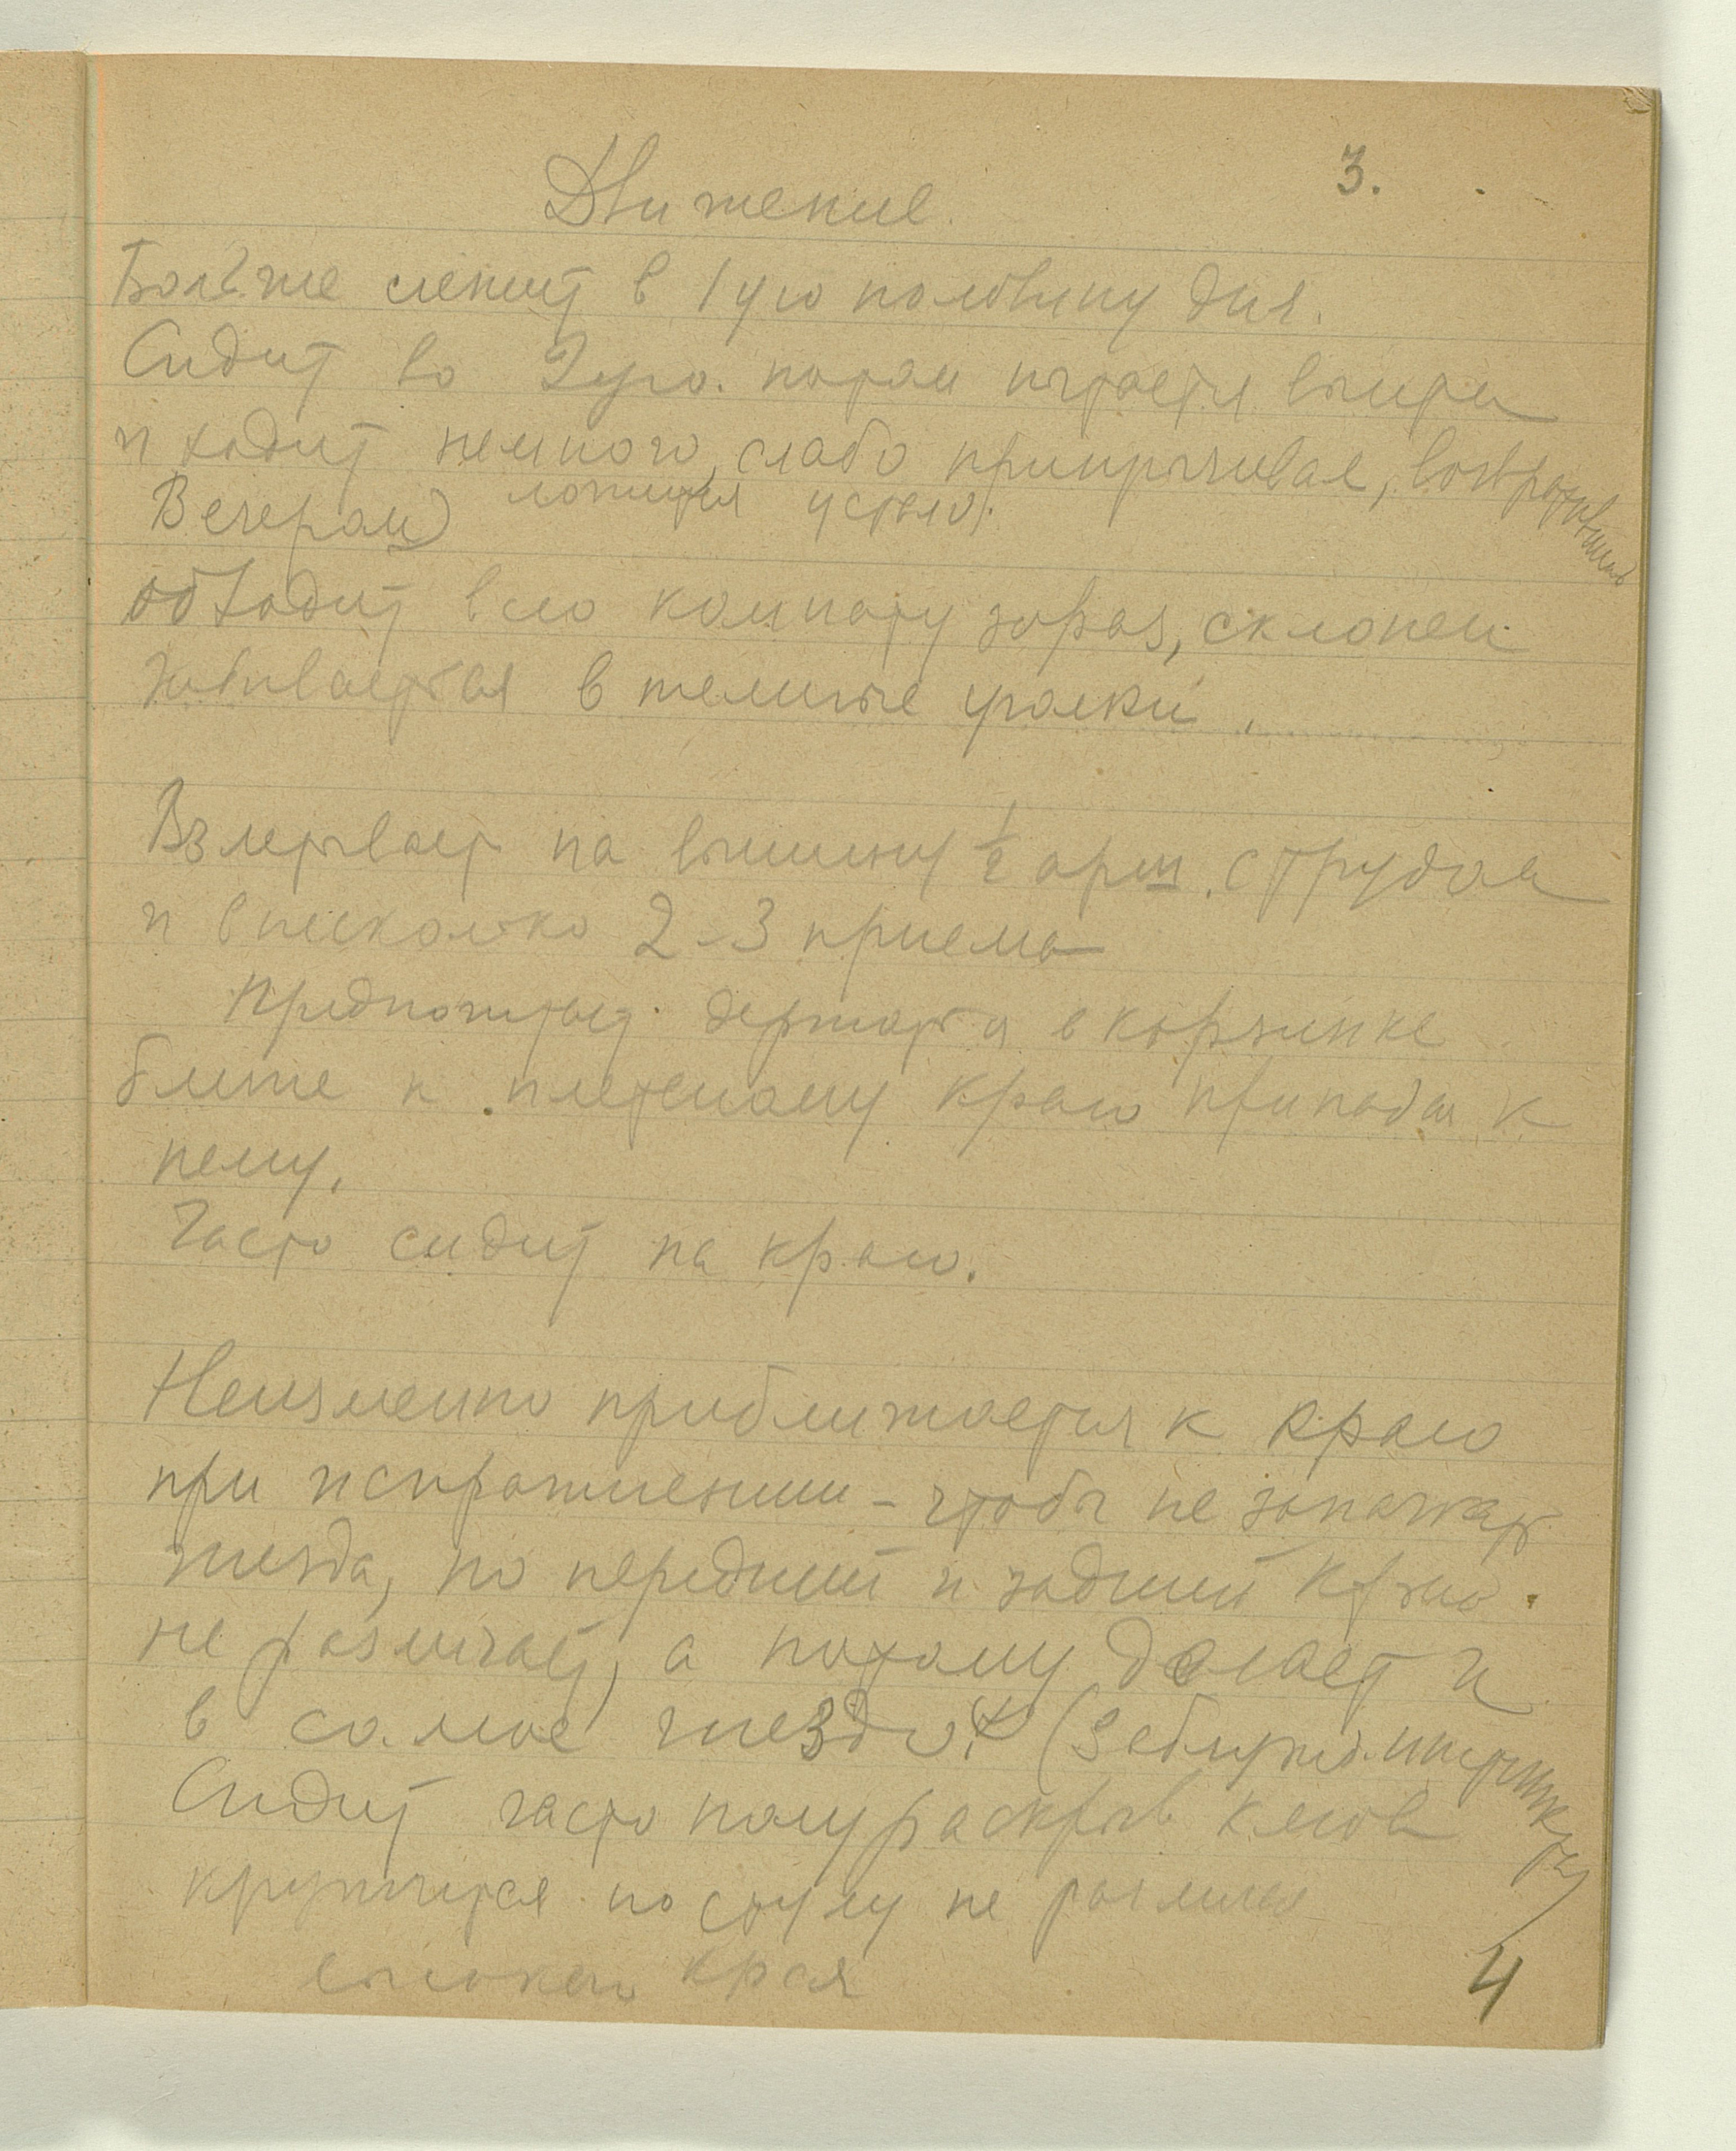 3.
Движение.
Больше лежит в 1ую половину дня.
Сидит во 2ую. потом пытается выйти
и ходит немного, слабо припрыгивая, возвратившись
Вечером ложится устало.
обходит всю комнату зараз, склонен
забиваться в темные уголки.
Взлетывает на вышину ½ арш. с трудом
и в несколько 2-3 приема
Предпочитает держаться в корзинке
ближе к плетеному краю припадая к
нему.
Часто сидит на краю.
Неизменно приближается к краю
при испражнении - чтобы не запачкать
гнезда, но передний и задний край
не различает, а потому делает и
в самое гнездо. (
Сидит часто полураскрыв клюв
кружится по стулу не различая
высокого края
4